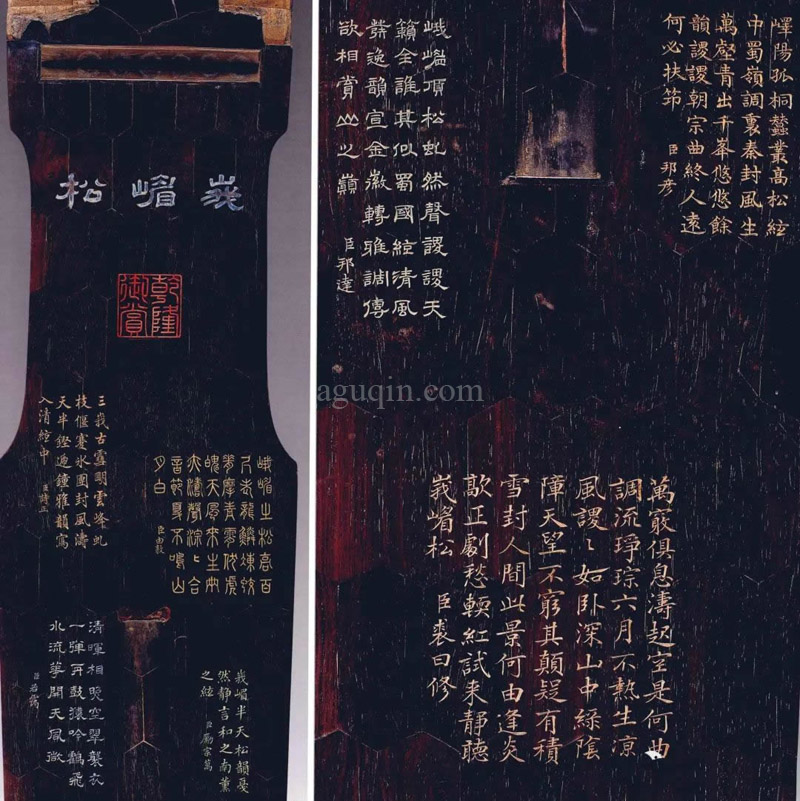 峩嵋松
乾隆
御賞
三峩古雪明雲峰虬
枝偃蹇氷團封風濤
天半鏗迊鍾雅韻寫
入清絃中
臣詩正
峨嵋之松高百
尺老龍鱗
摩青雲
魄天風來
濤聲淙〻合
音 夏不鳴山
月白
臣由敦
清暉相映空翠襲衣
一彈再鼓猿吟鶴飛
水流華開天風
臣若靄
峩嵋半天松韻憂
然靜言和之南薰
之絃
臣勵宗萬
嶧陽孤桐蠶叢高松絃
中蜀嶺調裏秦封風生
萬壑青出千峯悠悠餘
韻謖謖朝宗曲終人遠
何必扶笻
臣邦彦
峨嵋頂松虬然聲謖謖天
籟全誰其似蜀國絃清風
發逸韻宣金徽轉雅調傳
欲相賞山之巔
臣邦達
aguqin.com
萬竅俱息濤起室是何曲
調流琤琮六月不熱生凉
風謖〻如卧深山中綠陰
障天望不窮其顛疑有積
雪封人間此景何由逢炎
歊正劇愁輭紅試来靜聽
峩嵋松
臣裘曰修